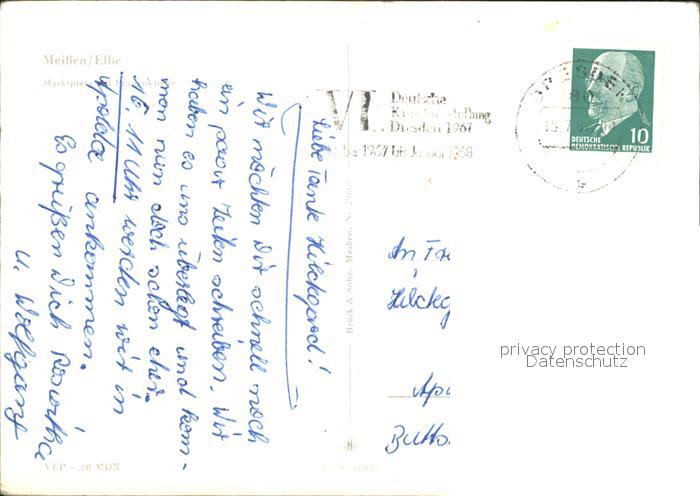 Meißen/Elbe
Marktplatz
Liebe Tante Hildegard!
Wir möchten Dir schnell noch
ein paar Zeilen schreiben. Wir
haben es uns überlegt und kom-
men nun doch schon eher.
16 11 Uhr werden wir in
Apolda ankommen.
Es grüßen Dich Roswitha
u. Wolfgang
VEP -,20 MDN
Brück & Sohn, Meißen, Nr.
VI. Deutsche
Kunstausstellung
Dresden 1967
1967 bis Januar 1968
DRESDEN
80
10
DEUTSCHE
DEMOKRATISCHE REPUBLIK
An Fr
Hildeg
Apo
Butts
privacy protection
Datenschutz